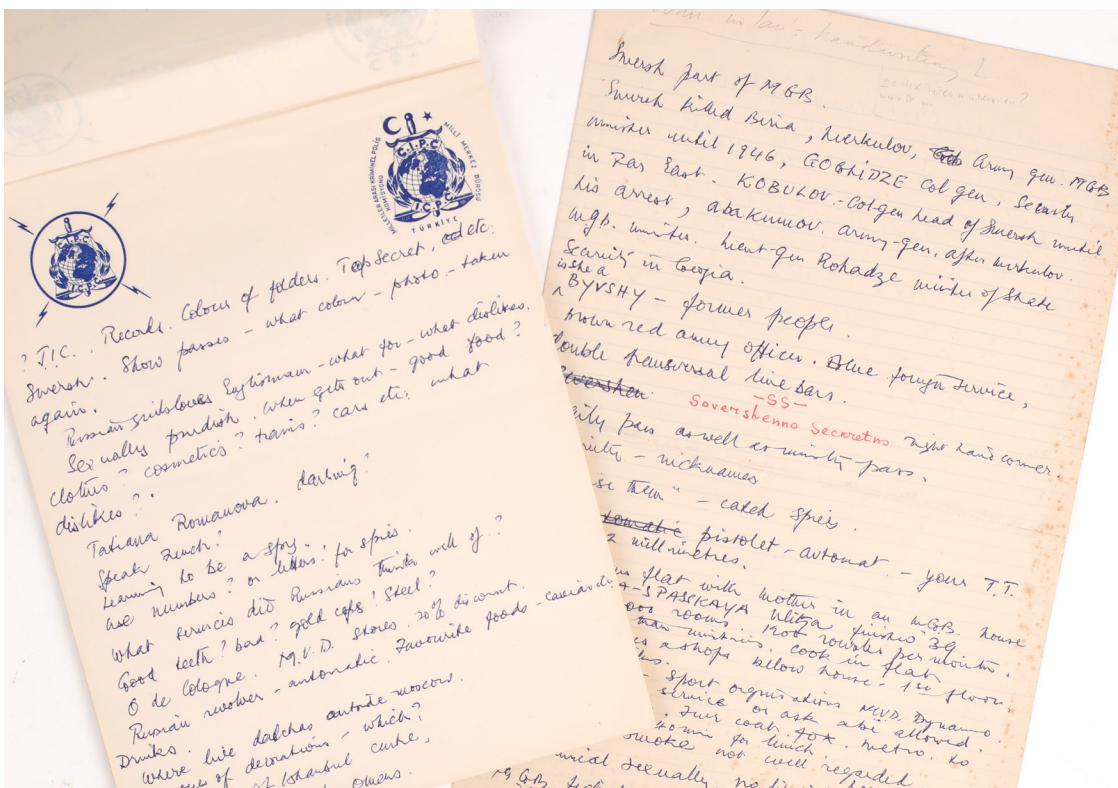 C.I.P.C.
I.C.P.C.
MİLLETLER ARASI KRİMİNEL POLİS
KOMİSYONU
MİLLİ MERKEZ BÜROSU
TÜRKİYE
C.I.P.C
I.C.P.C
? J.I.C. . Records. Colour of folders. Top Secret, etc.
Smersh. Show passes - what colour - photo - taken
again.
Russian girls loves Englishman - what for - what dislikes.
Sexually prudish. When gets out - good food?
clothes? cosmetics? trams? cars etc. what
dislikes?
Tatiana Romanova. darling?
Speak French?
Learning to be a spy.
Use numbers? or letters? for spies.
What services did Russians think well of?
Good teeth? bad? gold caps? Steel?
O de Cologne. M.V.D. stores. 20% discount.
Russian revolver - automatic. Favourite foods - caviar etc.
Drinks.
Where live datchas outside Moscow.
of decorations - which?
of Istanbul
Omens.
handwriting
Smersh part of MGB.
Smersh killed Beria, Merkulov, Army gen. MGB
minister until 1946, GOGLIDZE Col gen, Security
in Far East. KOBULOV - Col gen head of Smersh until
his arrest, Abakumov. army-gen, after Merkulov.
mgb. minister. Lieut-gen Rohadze minister of State
Security in Georgia.
is she a
BYVSHY - former people
brown red army officer. Blue foreign service,
double transversal line bars.
-SS-
Sovershenno Seckretno right hand corner.
pass as well as ministry pass.
- nicknames
them" - catch spies.
pistolet - automat. - your T.T.
millimetres.
flat with mother in an MGB. house
A-SPASSKAYA Ulitza
rooms. 1200 roubles per month.
cook in flat
shops below house - 1st floor.
Sport organisations MVD. Dynamo.
service or ask a bit allowed.
Fur coat. fox. metro. to
for lunch
smoke not well regarded
sexually no
MGB